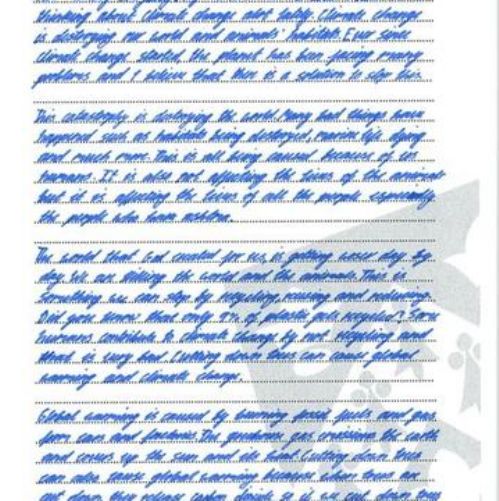 thinking about climate change and lately climate change
is destroying our world and animals' habitats. Ever since
climate change started, the planet has been facing many
problems and I believe that there is a solution to stop this.
This catastrophy is destroying the world. Many bad things have
happened such as habitats being destroyed, marine life dying
and much more. This is all being caused because of us
humans. It is also not affecting the lives of the animals
but it is affecting the lives of all the people especially
the people who have asthma.
The world that God created for us, is getting worse day by
day. We are killing the world and the animals. This is
something we can stop by recycling, reusing and reducing.
Did you know that only 9% of plastic gets recycled? Some
humans contribute to climate change by not recycling and
that is very bad. Cutting down trees can cause global
warming and climate change.
Global warming is caused by burning fossil fuels and gas
from cars and factories. The gas
and covers up the sun and Cutting down trees
can also cause global warming because when trees are
cut down they release carbon dioxide